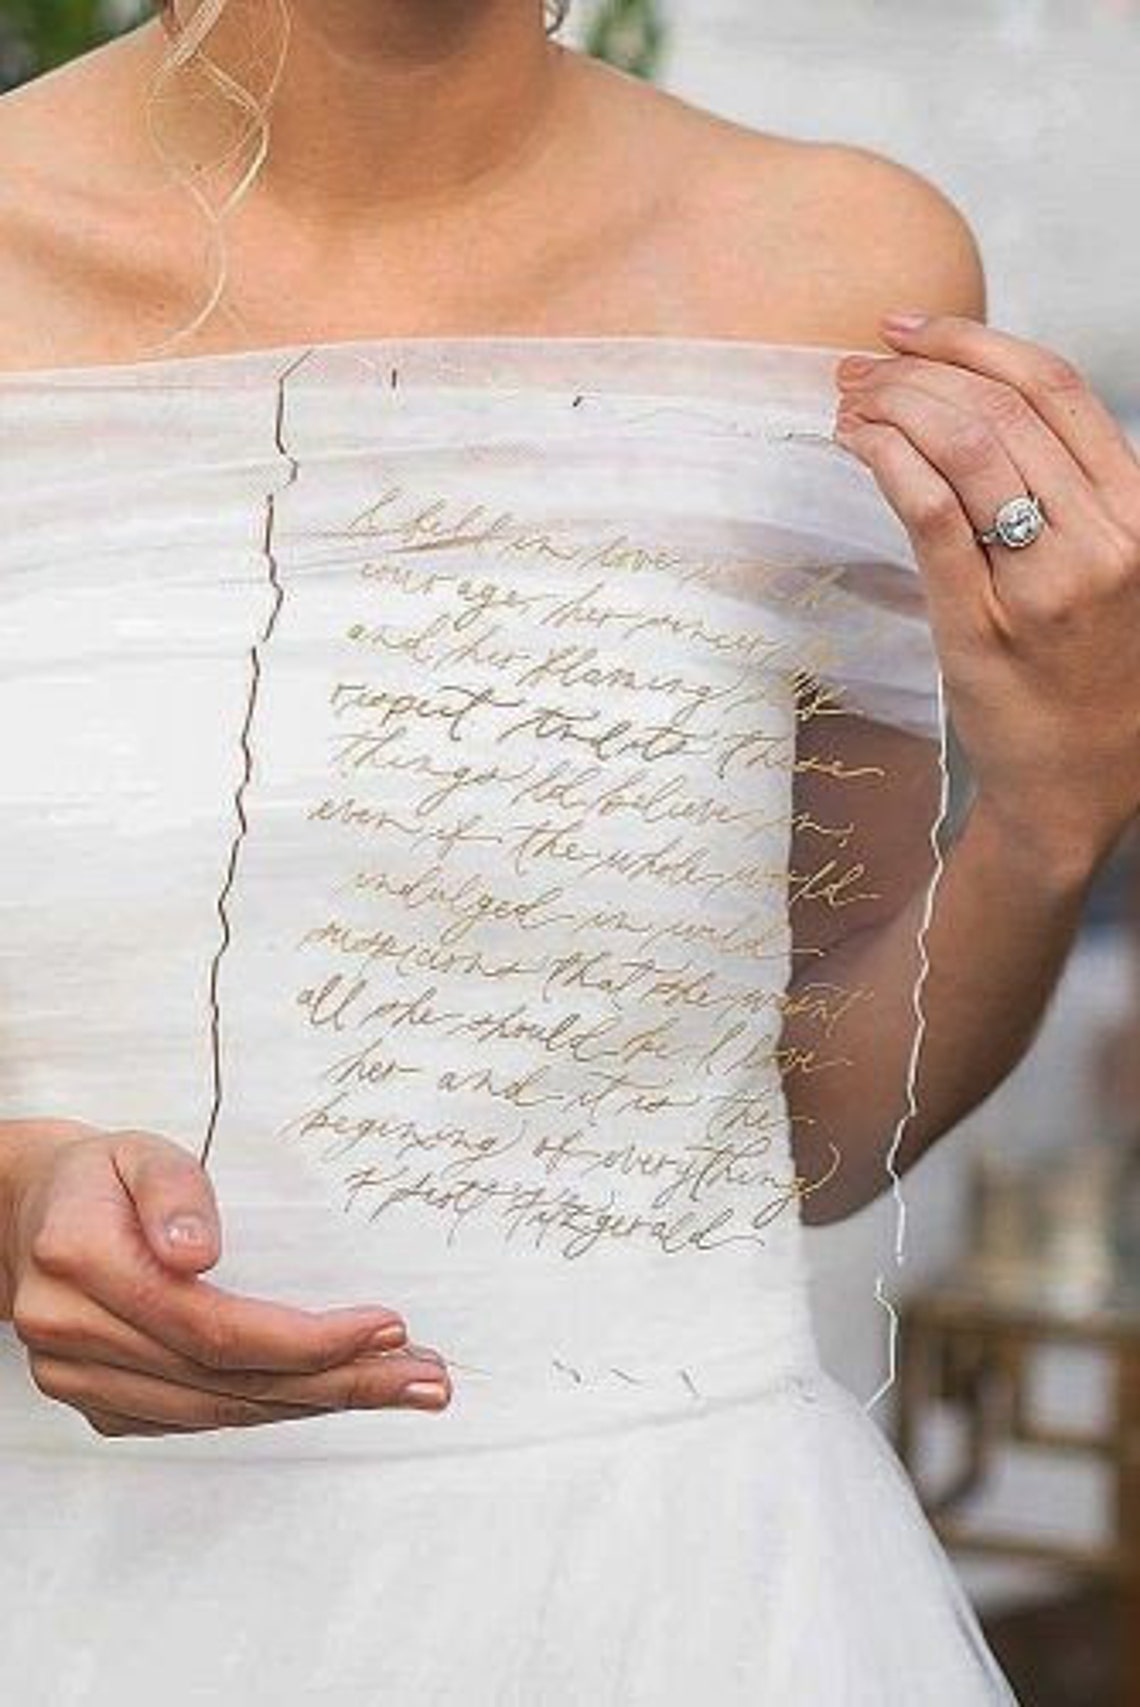 I fell in love with her
courage, her sincerity
and her flaming self
respect and it's these
things I'd believe in,
even if the whole world
indulged in wild
suspicions that she wasn't
all she should be. I love
her and it is the
beginning of everything
F. Scott Fitzgerald